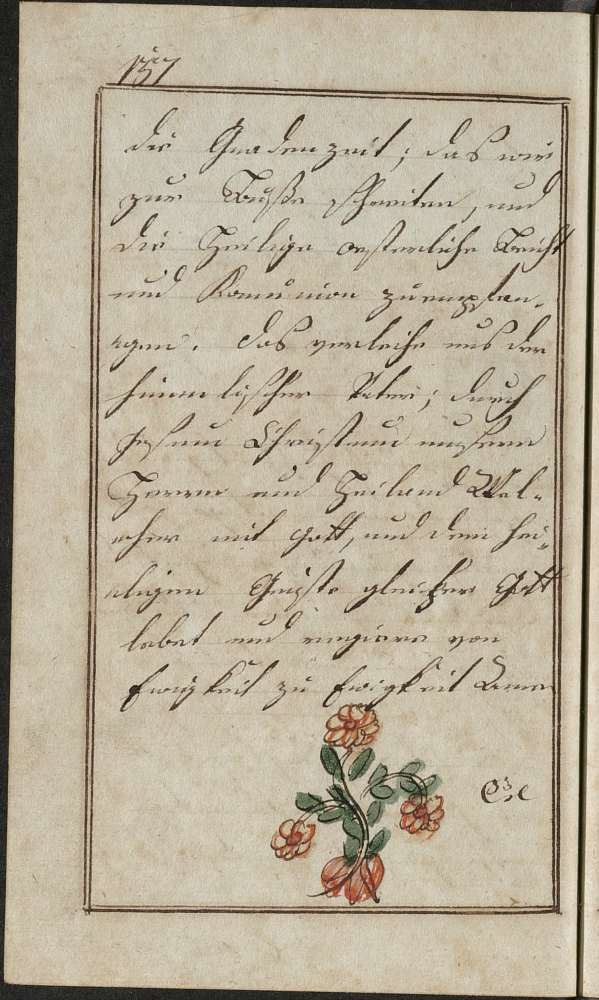 157
die Gnadenzeit; das wir
zur Buße schreiten, und
die Heilige oesterliche Beicht
und Komunion zuempfan-
gen. das verleihe uns der
himmlischer Vater; durch
Jesum Christum unsern
Herrn und Heiland Wel-
cher mit Gott, und dem hei-
ligen Geiste gleicher Gott
lebet und regiere von
Ewigkeit zu Ewigkeit Amen